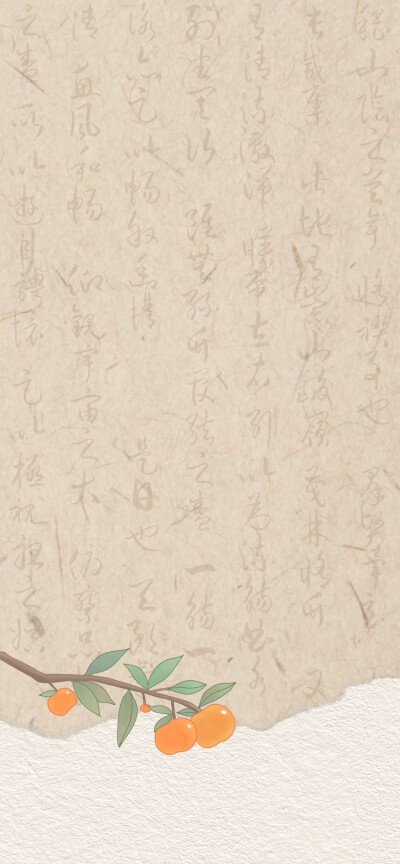 稽山陰之蘭亭脩禊事也群賢畢
長咸集此地有崇山峻領茂林脩竹又
有清流激湍暎帶左右引以為流觴曲水
列坐其次雖無絲竹管弦之盛一觴一
詠亦足以暢敘幽情是日也天朗
清惠風和暢仰觀宇宙之大俯察品
之盛所以遊目騁懷足以極視聽之娛